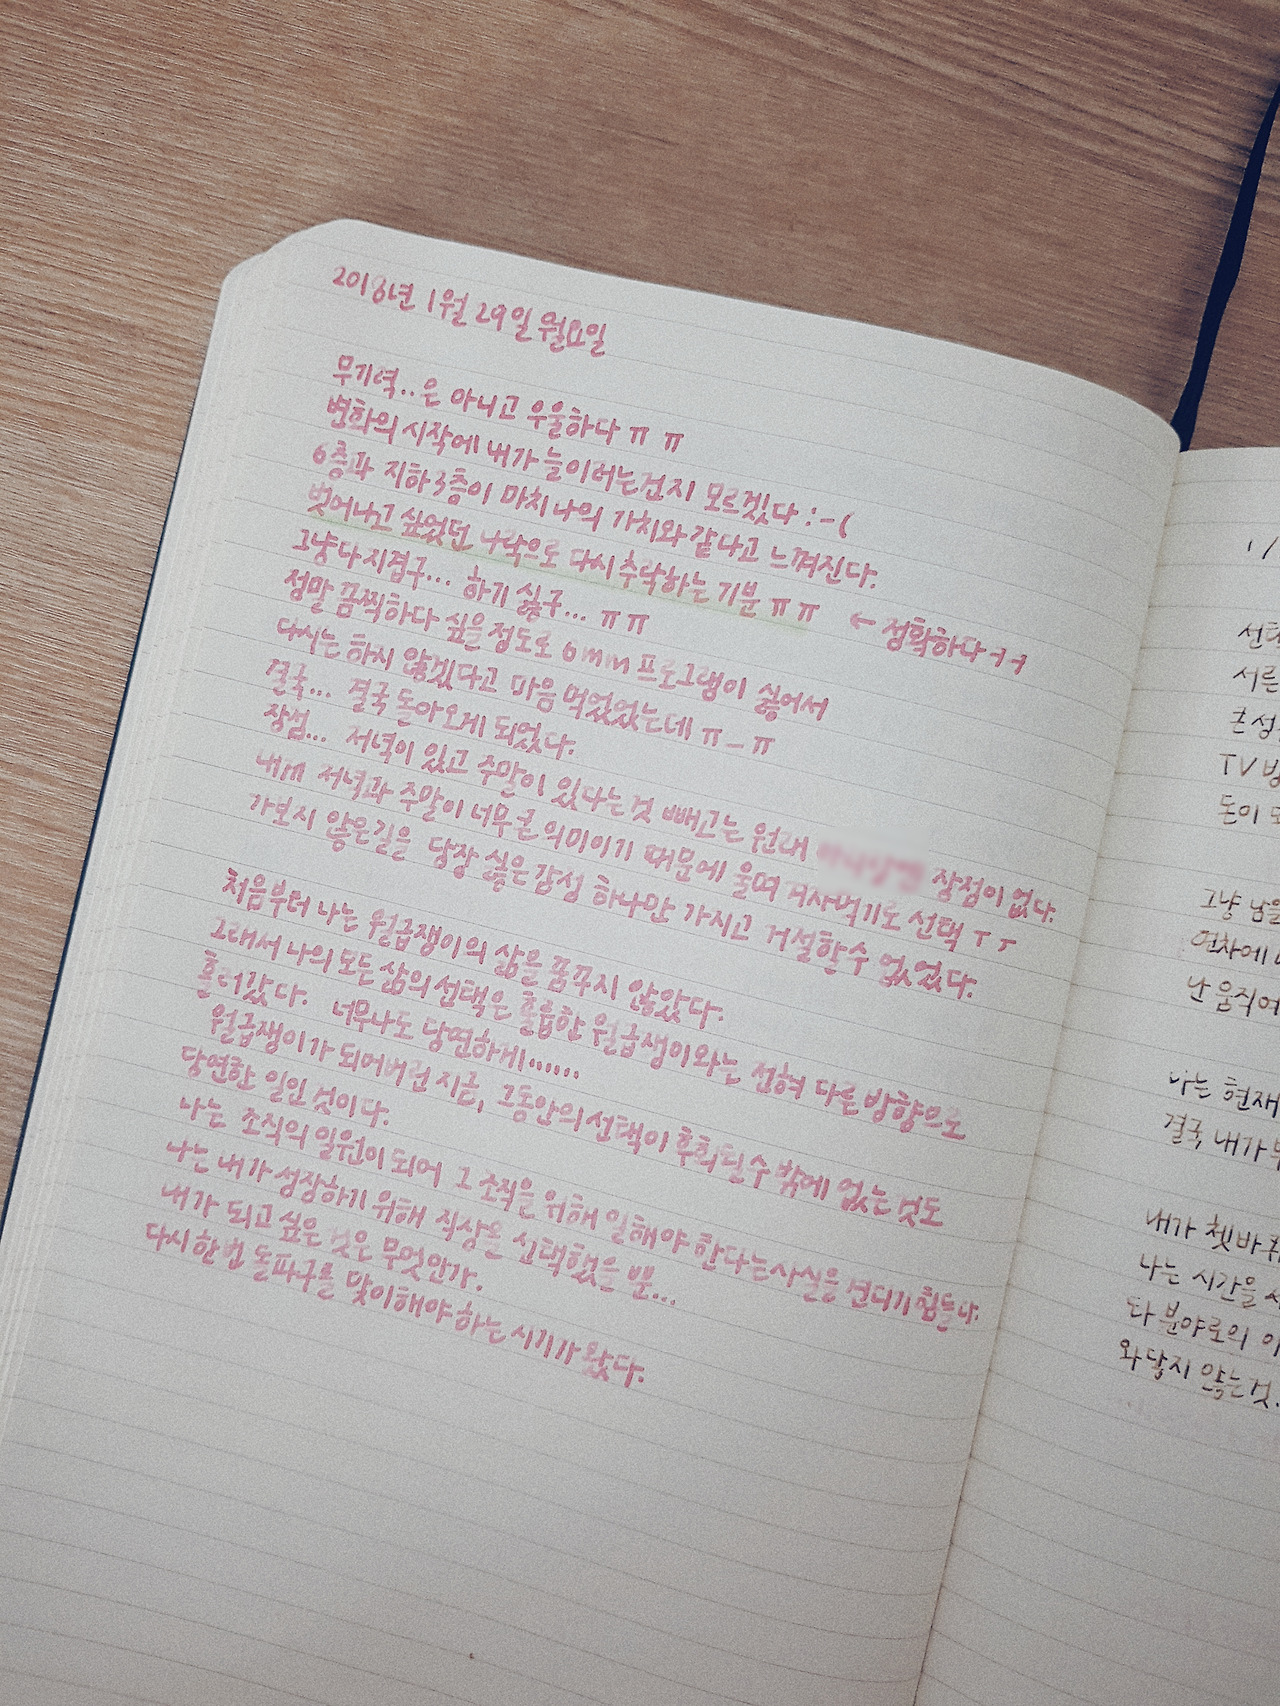 2018년 1월 29일 월요일
무기력..은 아니고 우울하다 ㅠㅠ
변화의 시작에 내가 놓이려는건지 모르겠다 :-(
6층과 지하3층이 마치 나의 가치와 같다고 느껴진다.
벗어나고 싶었던 나락으로 다시 추락하는 기분 ㅠㅠ ← 정확하다ㅋㅋ
그냥 다 지겹구... 하기 싫구... ㅠㅠ
정말 끔찍하다 싶을 정도로 6mm 프로그램이 싫어서
다시는 하지 않겠다고 마음 먹었었는데 ㅠ_ㅠ
결국... 결국 돌아오게 되었다.
장점... 저녁이 있고 주말이 있다는것 빼고는 원래 장점이 없다.
내 저녁과 주말이 너무 큰 의미이기 때문에 울며 겨자먹기로 선택 ㅜㅜ
가보지 않은길을 당장 싫은 감성 하나만 가지고 거절할수 없었다.
처음부터 나는 월급쟁이의 삶을 꿈꾸지 않았다.
그래서 나의 모든 삶의 선택은 훌륭한 월급쟁이와는 전혀 다른 방향으로
흘러갔다. 너무나도 당연하게......
월급쟁이가 되어버린 지금, 그동안의 선택이 후회될수 밖에 없는 것도
당연한 일인 것이다.
나는 조직의 일원이 되어 그 조직을 위해 일해야 한다는 사실을 견디기 힘들다.
나는 내가 성장하기 위해 직장을 선택했을 뿐...
내가 되고 싶은 것은 무엇인가.
다시한번 돌파구를 맞이해야 하는 시기가 왔다.
1/
서른
TV
돈이
그냥 남을
연차에
난 움직여
나는 현재
결국, 내가
내가 쳇바퀴
나는 시간을
타 분야로의 이
와닿지 않는것.